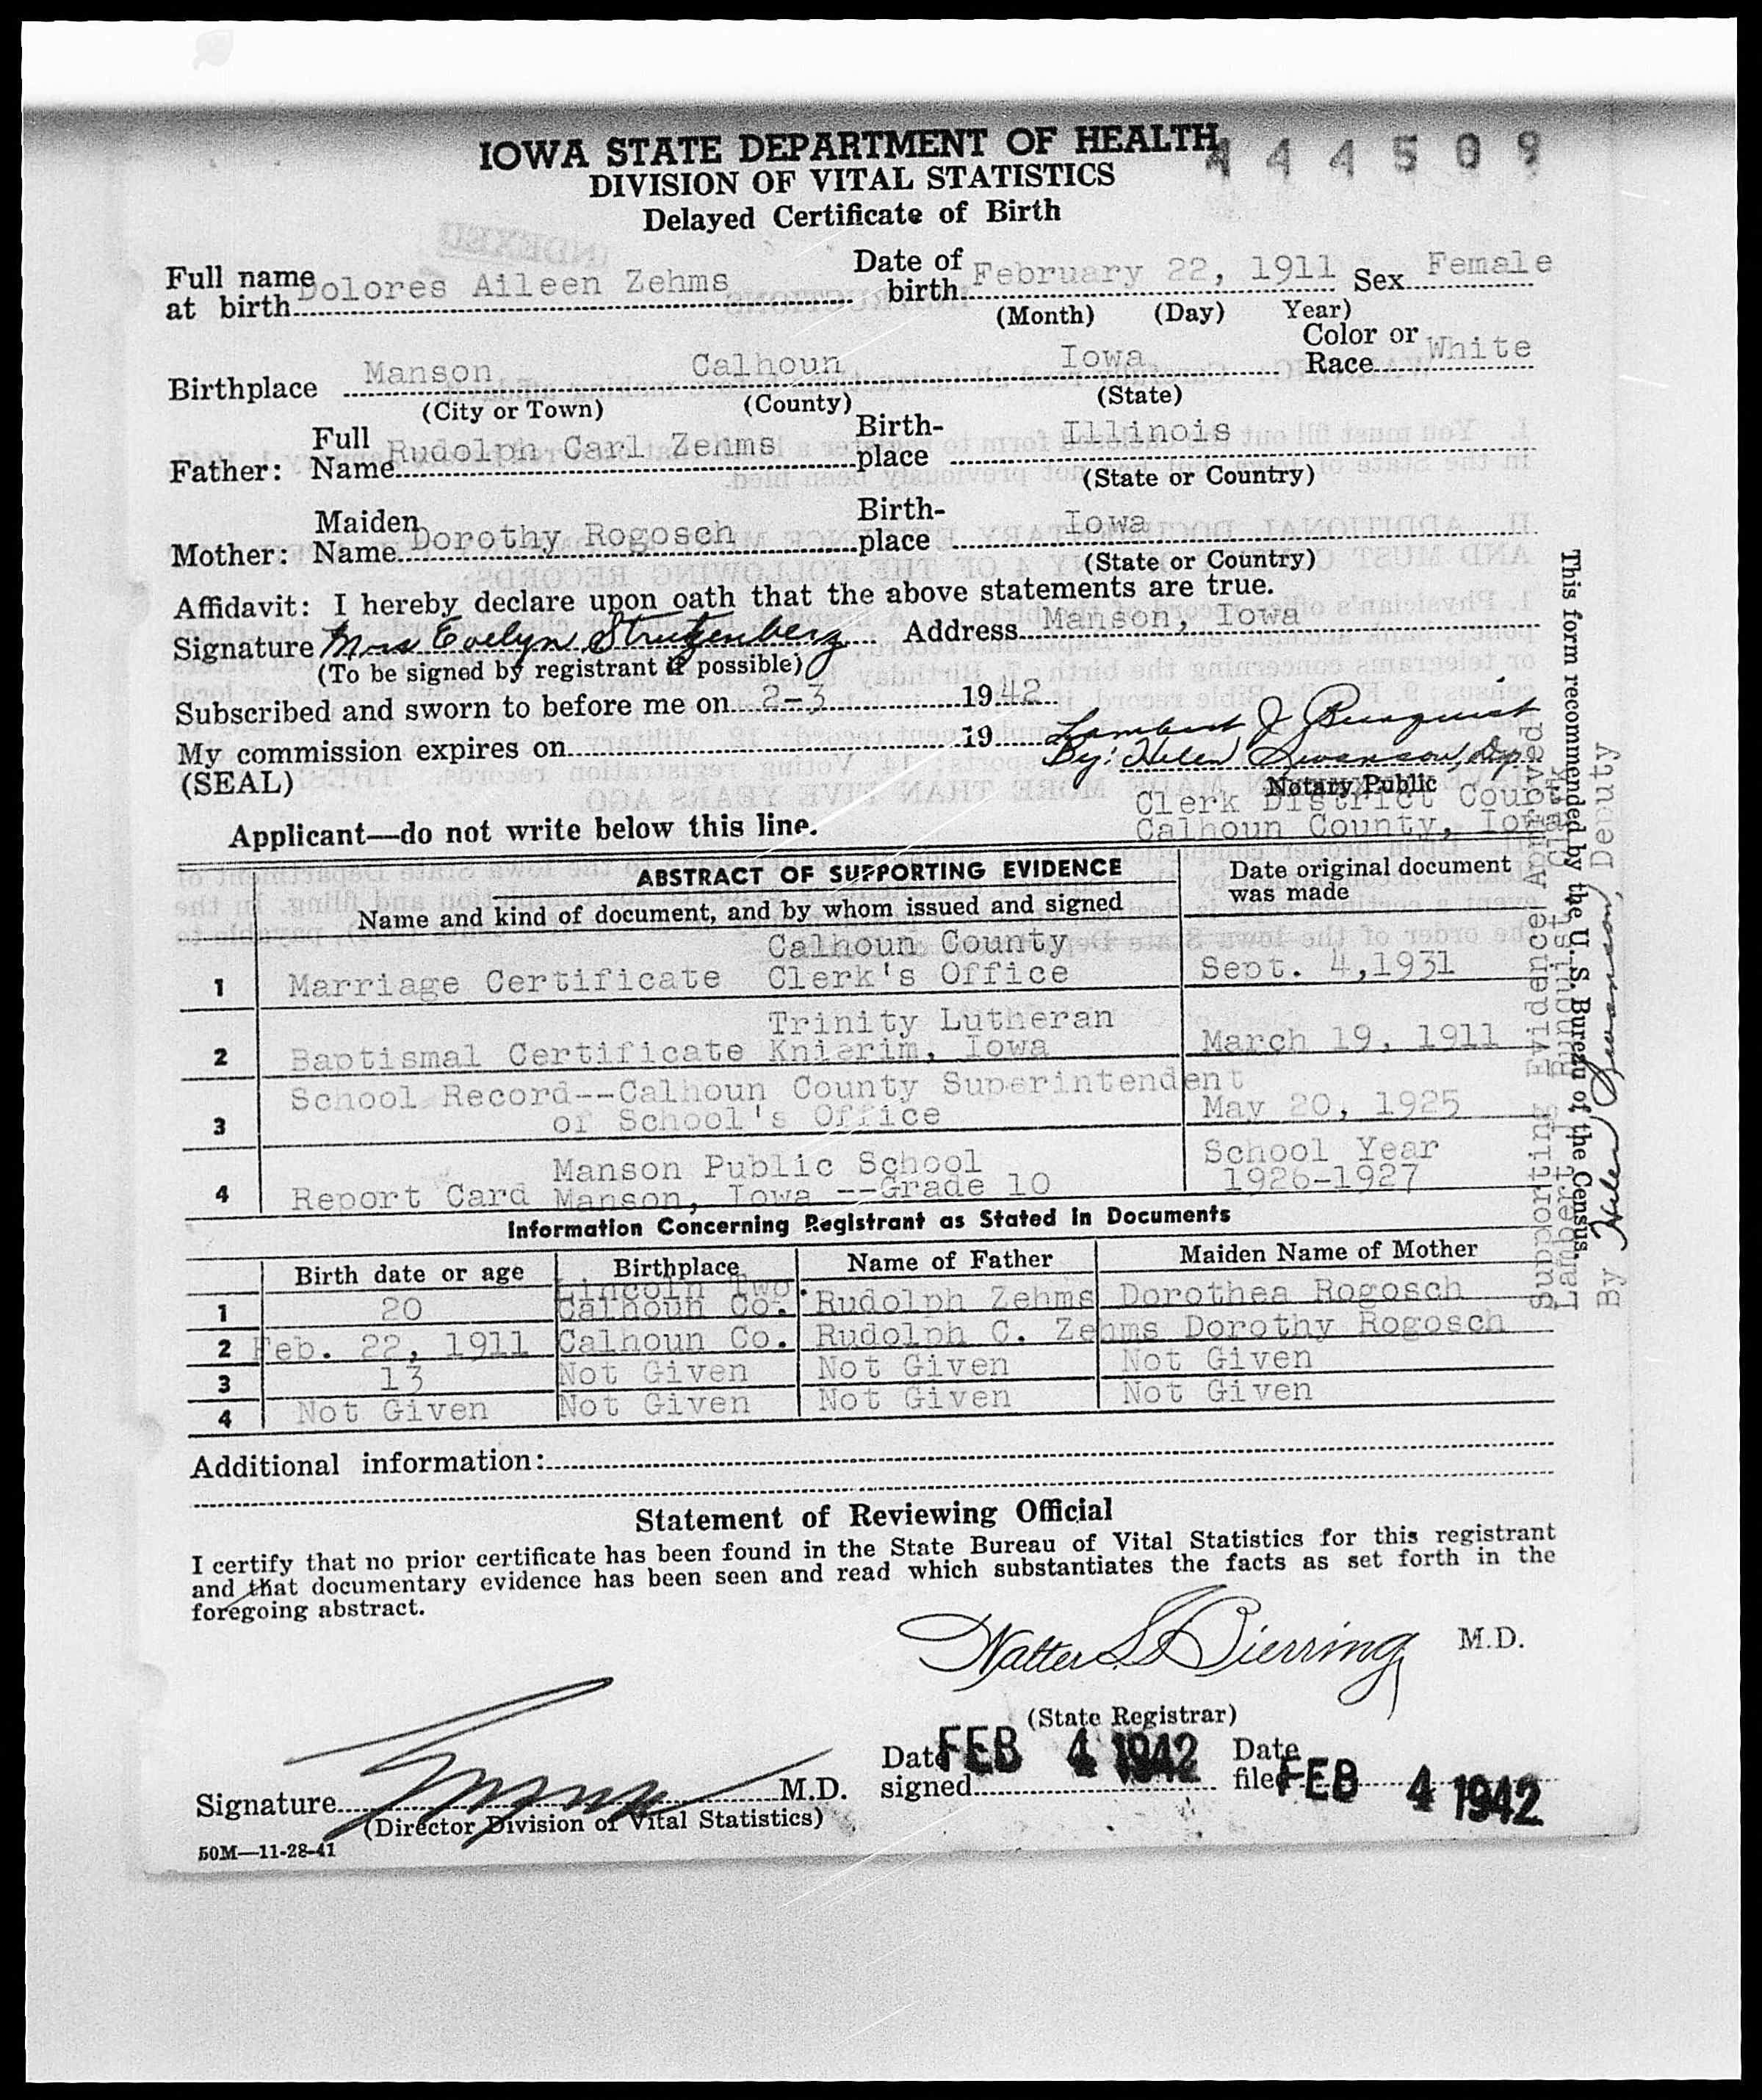 IOWA STATE DEPARTMENT OF HEALTH
444509
DIVISION OF VITAL STATISTICS
Delayed Certificate of Birth
INDEXED
Full name at birth Dolores Aileen Zehms Date of birth February 22, 1911 Sex Female
(Month) (Day) Year)
Birthplace Manson Calhoun Iowa Color or Race White
(City or Town) (County) (State)
Father: Full Name Rudolph Carl Zehms Birth-place Illinois
(State or Country)
Mother: Maiden Name Dorothy Rogosch Birth-place Iowa
(State or Country)
Affidavit: I hereby declare upon oath that the above statements are true.
Signature Mrs Evelyn Strutzenberg Address Manson, Iowa
(To be signed by registrant if possible)
Subscribed and sworn to before me on 2-3 1942
My commission expires on 19 Lambert J Burnquist
(SEAL) By: Helen Swanson, Dep.
Notary Public
Clerk District Court
Calhoun County, Iowa
Applicant—do not write below this line.
ABSTRACT OF SUPPORTING EVIDENCE
Name and kind of document, and by whom issued and signed
Date original document was made
1 Marriage Certificate Calhoun County Clerk's Office Sept. 4,1931
2 Baptismal Certificate Trinity Lutheran Knierim, Iowa March 19, 1911
3 School Record--Calhoun County Superintendent of School's Office May 20, 1925
4 Report Card Manson Public School Manson, Iowa --Grade 10 School Year 1926-1927
Information Concerning Registrant as Stated in Documents
Birth date or age Birthplace Name of Father Maiden Name of Mother
1 20 Lincoln Twp. Calhoun Co. Rudolph Zehms Dorothea Rogosch
2 Feb. 22, 1911 Calhoun Co. Rudolph C. Zehms Dorothy Rogosch
3 13 Not Given Not Given Not Given
4 Not Given Not Given Not Given Not Given
Additional information:
Statement of Reviewing Official
I certify that no prior certificate has been found in the State Bureau of Vital Statistics for this registrant
and that documentary evidence has been seen and read which substantiates the facts as set forth in the
foregoing abstract.
Walter L Bierring M.D.
(State Registrar)
Date signed FEB 4 1942 Date filed FEB 4 1942
Signature M.D.
(Director Division of Vital Statistics)
50M—11-28-41
This form recommended by the U. S. Bureau of the Census.
Supporting Evidence Approved
Lambert Clerk
By Helen Swanson, Deputy